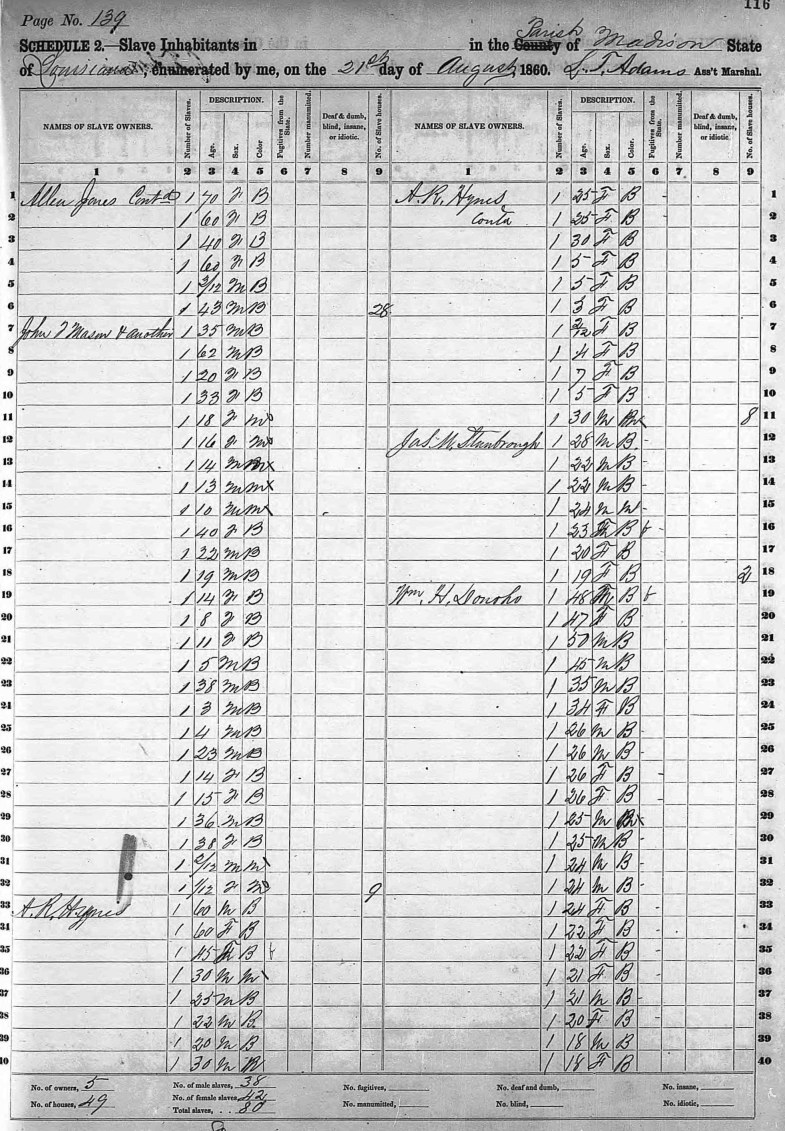 116
Page No. 139
SCHEDULE 2.—Slave Inhabitants in in the Parish County of Madison State
of Louisiana, enumerated by me, on the 21st day of August, 1860. L. T. Adams Ass't Marshal.
NAMES OF SLAVE OWNERS. Number of Slaves. DESCRIPTION. Age. Sex. Color. Fugitives from the State. Number manumitted. Deaf & dumb, blind, insane, or idiotic. No. of Slave houses. NAMES OF SLAVE OWNERS. Number of Slaves. DESCRIPTION. Age. Sex. Color. Fugitives from the State. Number manumitted. Deaf & dumb, blind, insane, or idiotic. No. of Slave houses.
1 2 3 4 5 6 7 8 9 1 2 3 4 5 6 7 8 9
1 Allen Jones Contd 1 70 F B A. R. Hynes 1 25 F B - 1
2 1 60 F B Contd 1 25 F B - 2
3 1 40 F B 1 30 F B 3
4 1 60 F B 1 5 F B 4
5 1 3/12 M B 1 5 F B 5
6 1 43 M B 28 1 3 F B 6
7 John T Mason & another 1 35 M B 1 2/12 F B 7
8 1 62 M B 1 4 F B 8
9 1 20 F B 1 7 F B 9
10 1 33 F B 1 5 F B 10
11 1 18 F M 1 30 M 8 11
12 1 16 F M Jas M. Stanbrough 1 28 M B - 12
13 1 14 M 1 22 M B - 13
14 1 13 M M 1 22 M B 14
15 1 10 M M 1 24 M M - 15
16 1 40 F B 1 23 B 16
17 1 22 M B 1 20 F B 17
18 1 19 M B 1 19 F B 2 18
19 1 14 F B Wm. H. Donoho 1 48 B 19
20 1 8 F B 1 47 F B 20
21 1 11 F B 1 50 M B 21
22 1 5 M B 1 45 M B 22
23 1 38 M B 1 35 M B 23
24 1 3 M B 1 34 F B 24
25 1 4 M B 1 26 M B - 25
26 1 23 M B 1 26 M B - 26
27 1 14 F B 1 26 F B - 27
28 1 15 F B 1 26 F B - 28
29 1 36 M B 1 25 M 29
30 1 38 F B 1 25 M B - 30
31 1 2/12 M M 1 24 M B - 31
32 1 1/12 F M 9 1 24 M B - 32
33 A. R. Hynes 1 60 M B 1 24 F B - 33
34 1 60 F B 1 22 F B - 34
35 1 45 B 1 22 F B - 35
36 1 30 M M 1 21 F B - 36
37 1 25 M B 1 21 M B - 37
38 1 22 M B 1 20 F B - 38
39 1 20 M B 1 18 M B - 39
40 1 30 M 1 18 F B 40
No. of owners, 5 No. of male slaves, 38 No. fugitives, No. deaf and dumb, No. insane,
No. of houses, 49 No. of female slaves, 42 No. manumitted, No. blind, No. idiotic,
Total slaves, 80